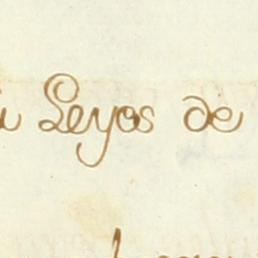 Leyos de